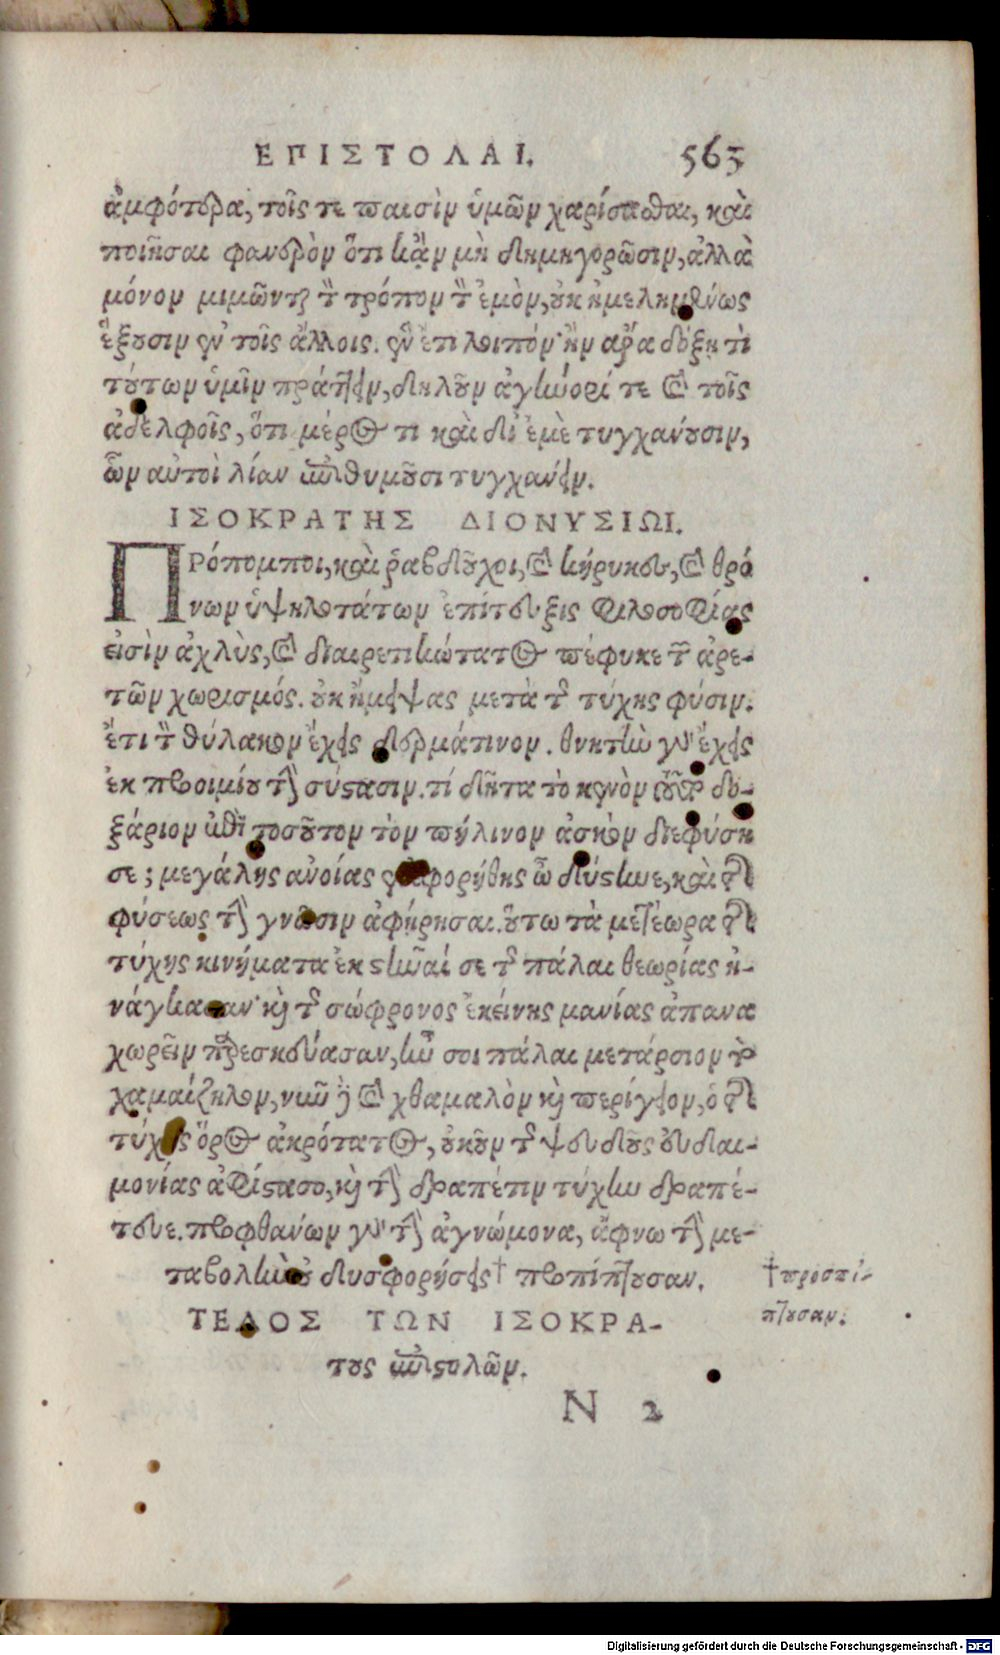 ΕΠΙΣΤΟΛΑΙ. 565
ἀμφότερα, τοῖς τε παισὶν ὑμῶν χαρίσασθαι, καὶ
ποιῆσαι φανερὸν ὅτι κἂν μὴ δημηγορῶσιν, ἀλλὰ
μόνον μιμῶνται τὸν τρόπον τὸν ἐμὸν, οὐκ ἠμελημένως
ἕξουσιν ἐν τοῖς ἄλλοις. ἓν ἔτι λοιπόν· ἢν ἄρα δόξῃ τὶ
τούτων ὑμῖν πράττειν, δηλοῦν ἀγήνορί τε καὶ τοῖς
ἀδελφοῖς, ὅτι μέρος τι καὶ δι' ἐμὲ τυγχανουσιν,
ὧν αὐτοὶ λίαν ἐπιθυμοῦσι τυγχανειν.
ΙΣΟΚΡΑΤΗΣ ΔΙΟΝΥΣΙΩΙ.
ΠΡόπομποι, καὶ ῥαβδοῦχοι, καὶ κήρυκευ, καὶ θρό
νων ὑψηλοτάτων ἐπίτευξις φιλοσοφίας
εἰσὶν ἀχλὺς, καὶ διαιρετικώτατος πέφυκε τῶν ἀρε-
τῶν χωρισμός. οὐκ ἤμειψας μετὰ τῆς τύχης φύσιν.
ἔτι τὸν θύλακον ἔχεις δερμάτινον. θνητὴν γὰρ ἔχεις
ἐκ προοιμίου τὴν σύστασιν. τί δῆτα τὸ κενὸν τοῦτο δο-
ξάριον ἐπὶ τοσοῦτον τὸν πήλινον ἀσκὸν διεφύση
σε; μεγάλης ἀνοίας ἐφορήθης ὦ δύστηνε, καὶ τῆς
φύσεως τὴν γνῶσιν ἀφῄρησαι. οὕτω τὰ μετέωρα τῆς
τύχης κινήματα ἐκστῆναί σε τῆς πάλαι θεωρίας ἠ-
νάγκασαν· καὶ τῆς σώφρονος ἐκείνης μανίας ἀπανα
χωρεῖν παρεσκεύασαν, ἦν σοι πάλαι μετάρσιον τὸ
χαμαίζηλον, νῦν δὲ καὶ χθαμαλὸν καὶ περίγειον, ὁ τῆς
τύχης ὅρος ἀκρότατος, οὐκοῦν τῆς ψευδοῦς εὐδαι-
μονίας ἀφίστασο, καὶ τὴν δραπέτιν τύχην δραπέ-
τευε. προφθανων γὰρ τὴν ἀγνώμονα, ἄφνω τὴν με-
ταβολὴν οὐ δυσφορήσεις † προπίπτουσαν.
† προσπί-
πτουσαν.
ΤΕΛΟΣ ΤΩΝ ΙΣΟΚΡΑ-
τους ἐπιστολῶν.
N 2
Digitalisierung gefördert durch die Deutsche Forschungsgemeinschaft - DFG